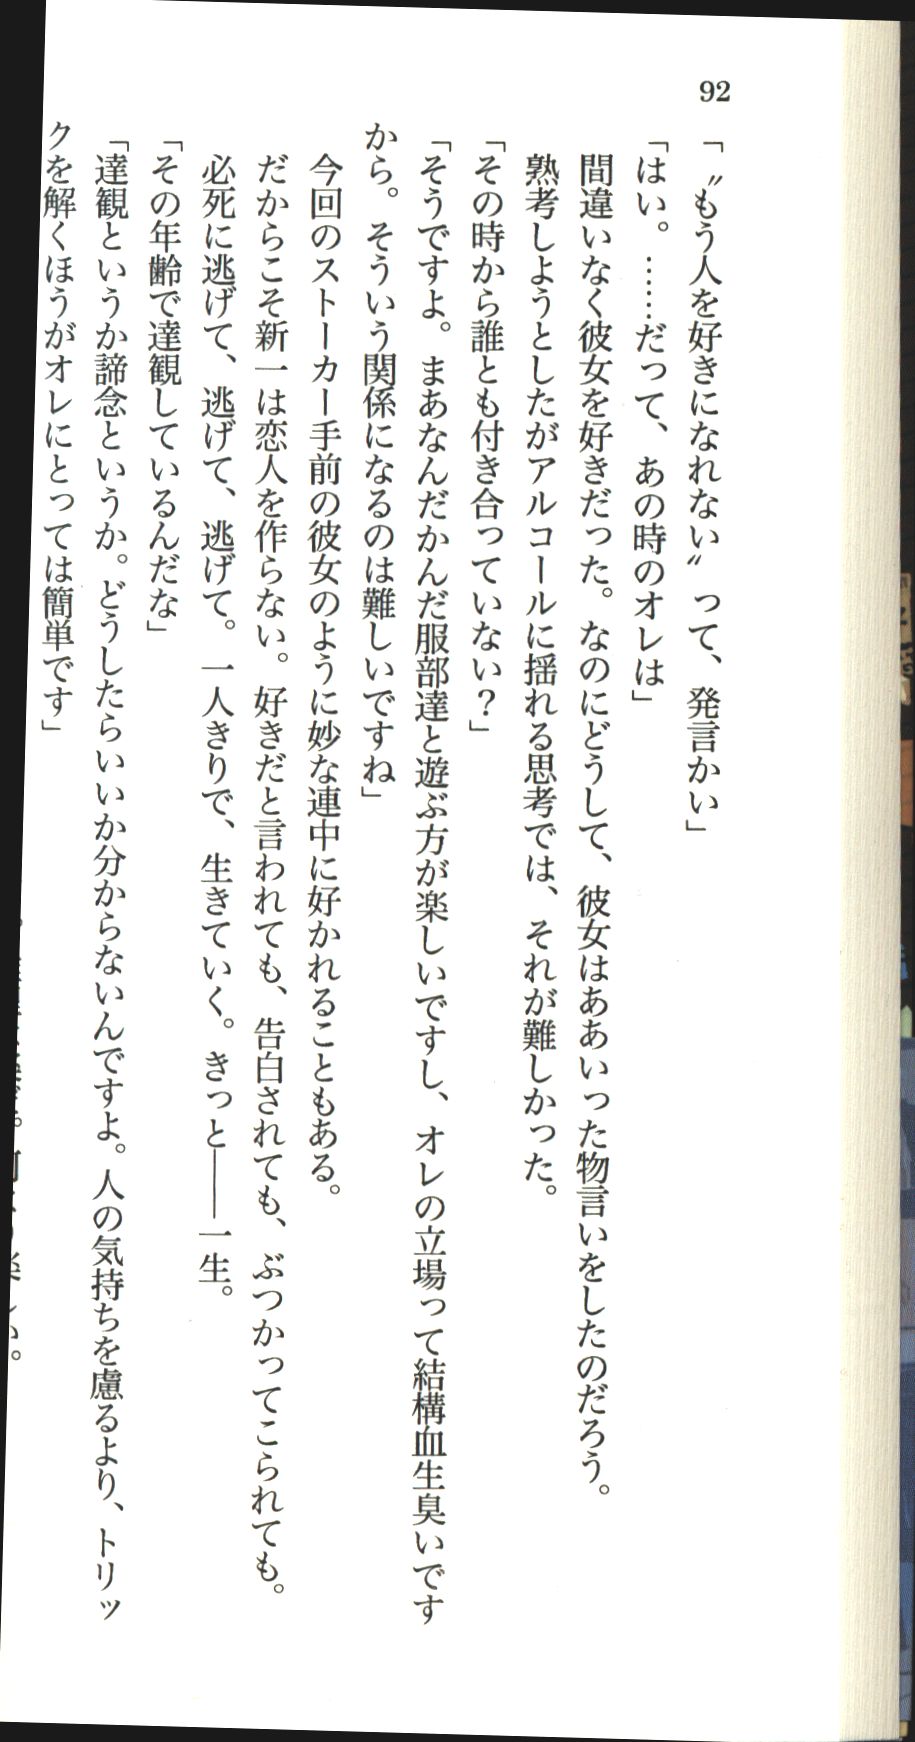 92
「〝もう人を好きになれない〟って、発言かい」
「はい。……だって、あの時のオレは」
間違いなく彼女を好きだった。なのにどうして、彼女はああいった物言いをしたのだろう。
熟考しようとしたがアルコールに揺れる思考では、それが難しかった。
「その時から誰とも付き合っていない？」
「そうですよ。まあなんだかんだ服部達と遊ぶ方が楽しいですし、オレの立場って結構血生臭いです
から。そういう関係になるのは難しいですね」
今回のストーカー手前の彼女のように妙な連中に好かれることもある。
だからこそ新一は恋人を作らない。好きだと言われても、告白されても、ぶつかってこられても。
必死に逃げて、逃げて、逃げて。一人きりで、生きていく。きっと――一生。
「その年齢で達観しているんだな」
「達観というか諦念というか。どうしたらいいか分からないんですよ。人の気持ちを慮るより、トリッ
クを解くほうがオレにとっては簡単です」